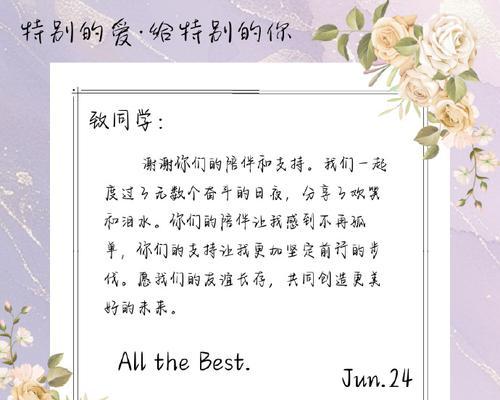 特别的爱·给特别的你
致同学：
谢谢你们的陪伴和支持。我们一起
度过了无数个奋斗的日夜，分享了欢笑
和泪水。你们的陪伴让我感到不再孤
单，你们的支持让我更加坚定前行的步
伐。愿我们的友谊长存，共同创造更美
好的未来。
All the Best.
Jun.24